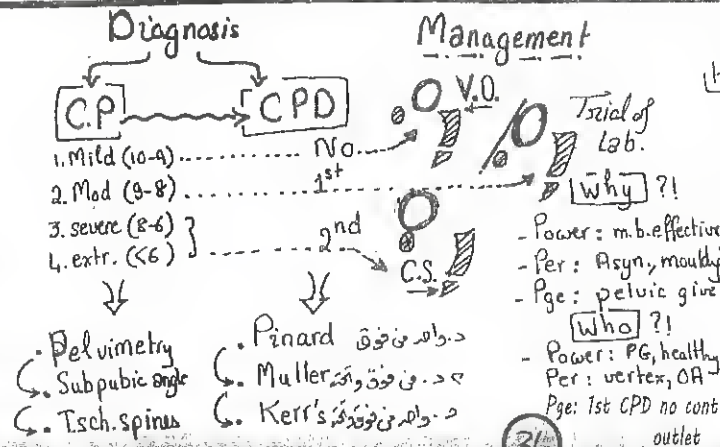 Diagnosis
C.P → CPD
1. Mild (10-9) ........ No
2. Mod (9-8) ........ 1st
3. severe (8-6)
4. extr. (<6) ........ 2nd
. Pelvimetry
. Subpubic angle
. Isch. spines
. Pinard
. Muller
. Kerr's
Management
V.D.
Trial of
Lab.
C.S.
Why ?!
- Power: m.b. effective
- Per: Asyn., mould
- Pge: pelvic give
Who ?!
- Power: PG, healthy
Per: vertex, OA
Pge: 1st CPD no cont
outlet